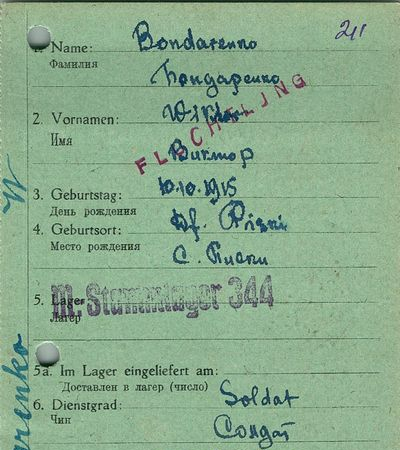 211
1. Name: Bondarenko
Фамилия
Бондаренко
2. Vornamen: Viktor
Имя
Виктор
FLECHELJNG
3. Geburtstag: 10.10.1915
День рождения
4. Geburtsort: Df. Pisni
Место рождения
С. Писни
5. Lager
Лагер
M. Stammlager 344
5a. Im Lager eingeliefert am:
Доставлен в лагер (число)
6. Dienstgrad: Soldat
Чин
Солдат